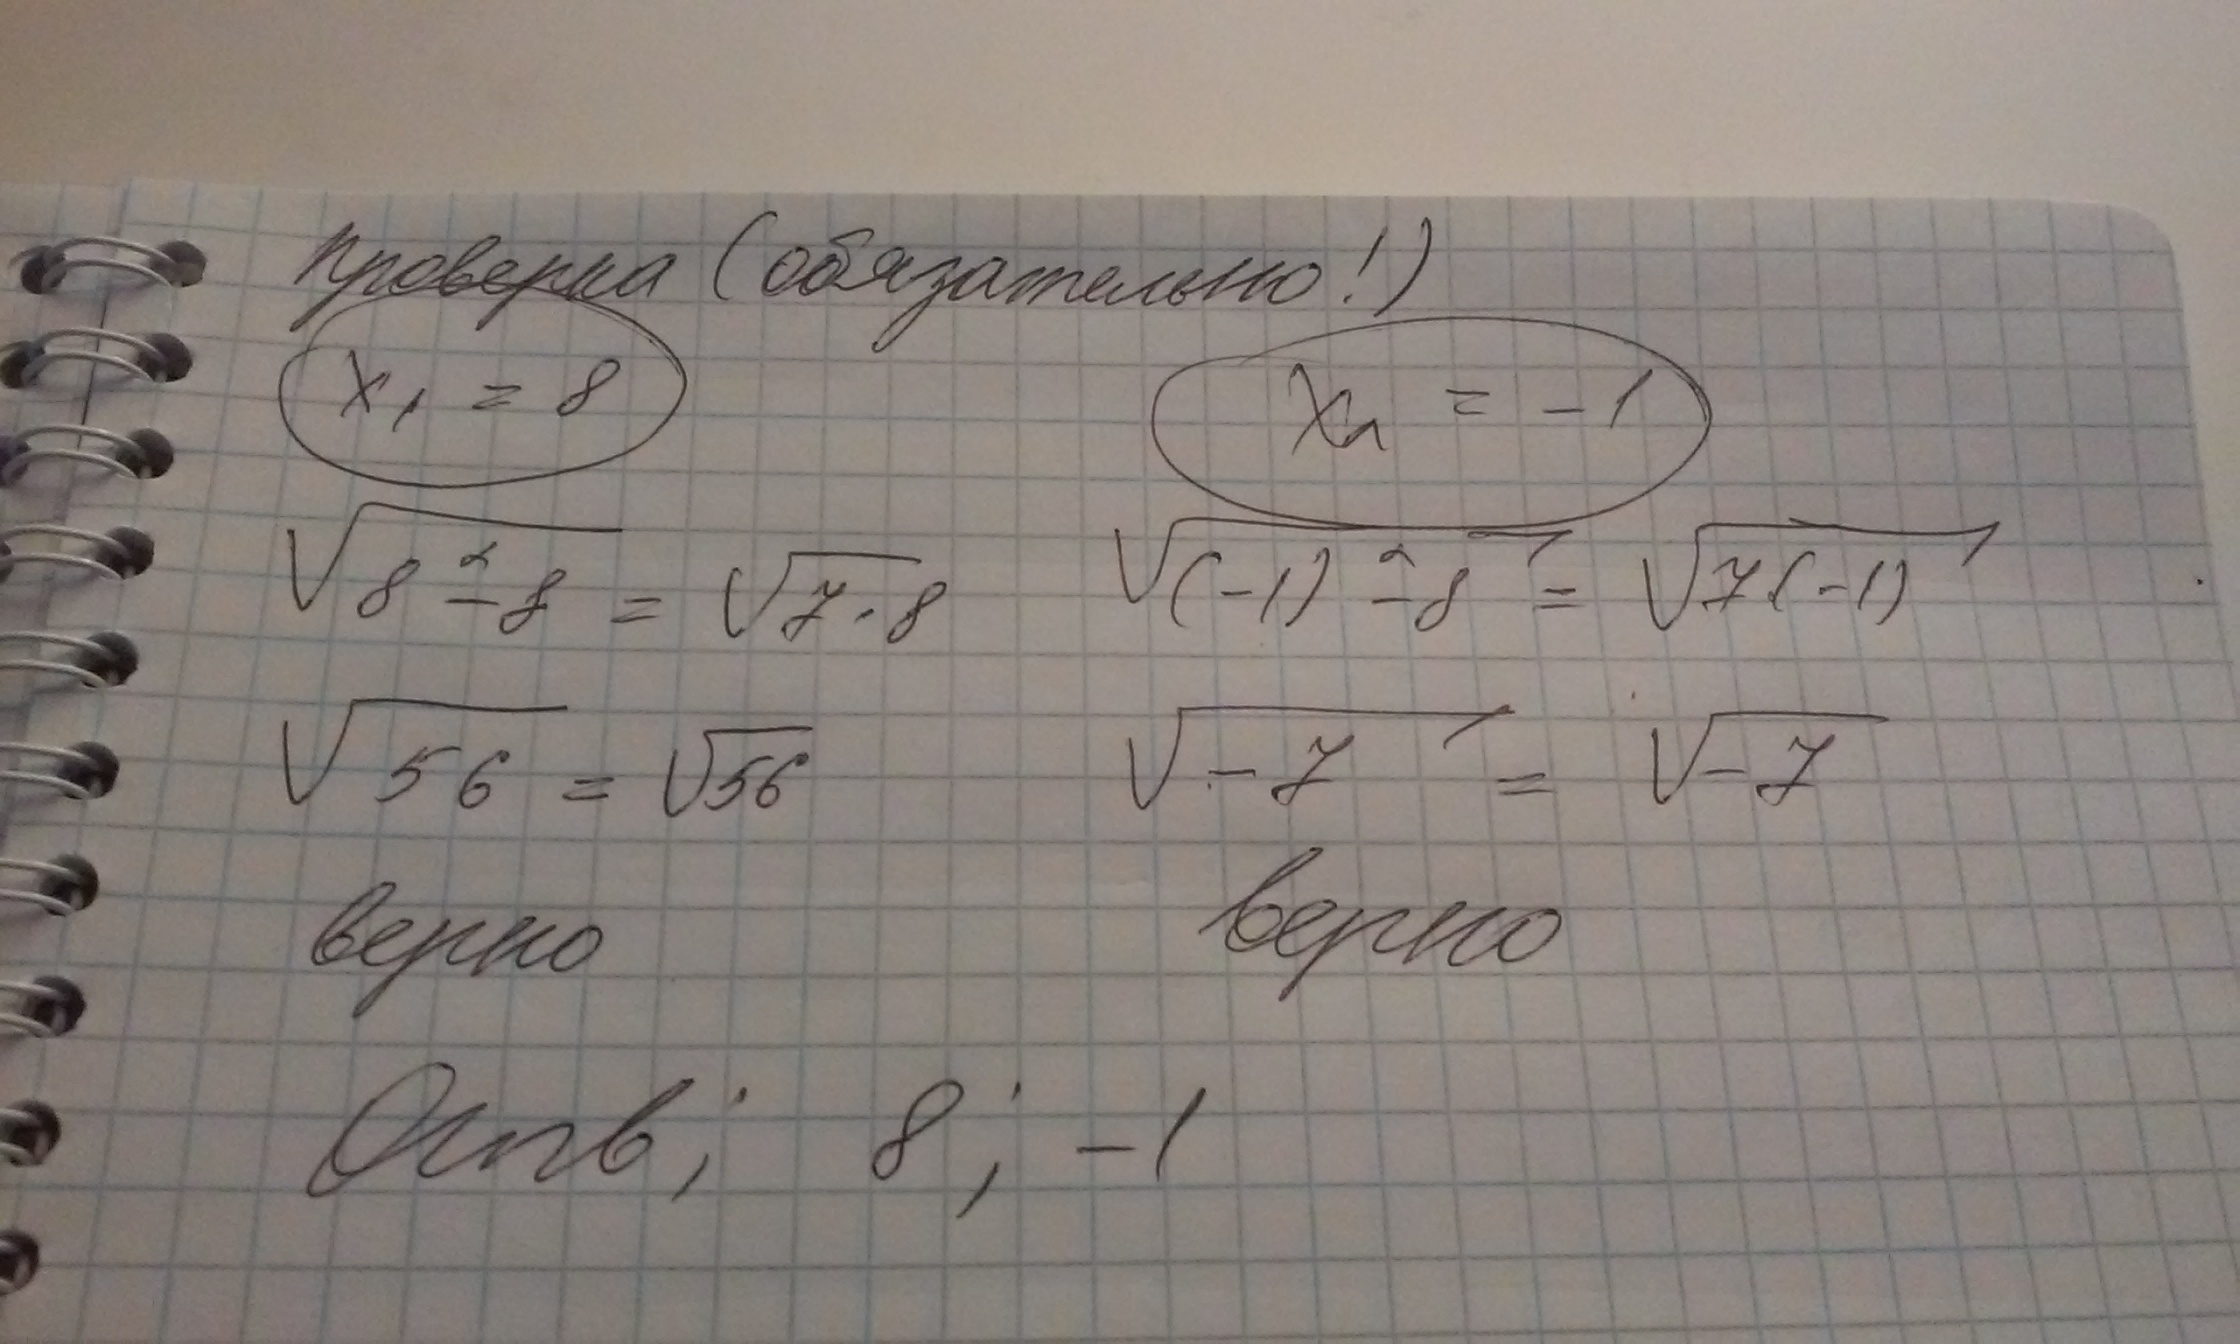 Проверка (обязательно!)
x₁ = 8 x₂ = -1
√(8² - 8) = √(7·8) √((-1)² - 8) = √(7·(-1))
√56 = √56 √-7 = √-7
верно верно
Отв; 8; -1